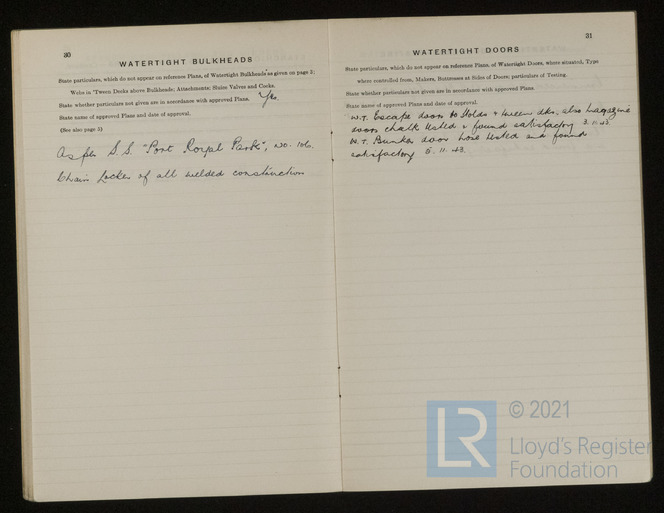 30
WATERTIGHT BULKHEADS
State particulars, which do not appear on reference Plans, of Watertight Bulkheads as given on page 3;
Webs in 'Tween Decks above Bulkheads; Attachments; Sluice Valves and Cocks.
State whether particulars not given are in accordance with approved Plans. Yes.
State name of approved Plans and date of approval.
(See also page 5)
As per S.S. "Port Royal Park", No. 106.
Chain Locker of all welded construction
31
WATERTIGHT DOORS
State particulars, which do not appear on reference Plans, of Watertight Doors, where situated, Type
where controlled from, Makers, Buttresses at Sides of Doors; particulars of Testing.
State whether particulars not given are in accordance with approved Plans.
State name of approved Plans and date of approval.
W.T. Escape doors to Holds & tween dks, also magazine
doors chalk tested & found satisfactory 3.11.43.
W.T. Bunker door hose tested and found
satisfactory 5.11.43.
LR
© 2021
Lloyd's Register
Foundation